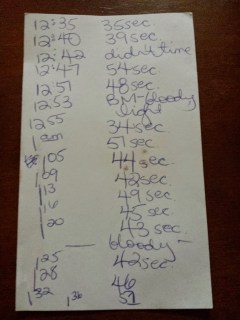 12:35 35sec
12:40 39sec
12:42 didn't time
12:47 54sec
12 51 48sec.
12:53 BM-bloody
light
12 55 34sec
1 51 sec
1 05 44 sec.
1 09 42sec.
1 13 49 sec.
1 16 45 sec.
1 20 43 sec.
— bloody —
1 25 42sec
1 28 46
1 32 1 36 51